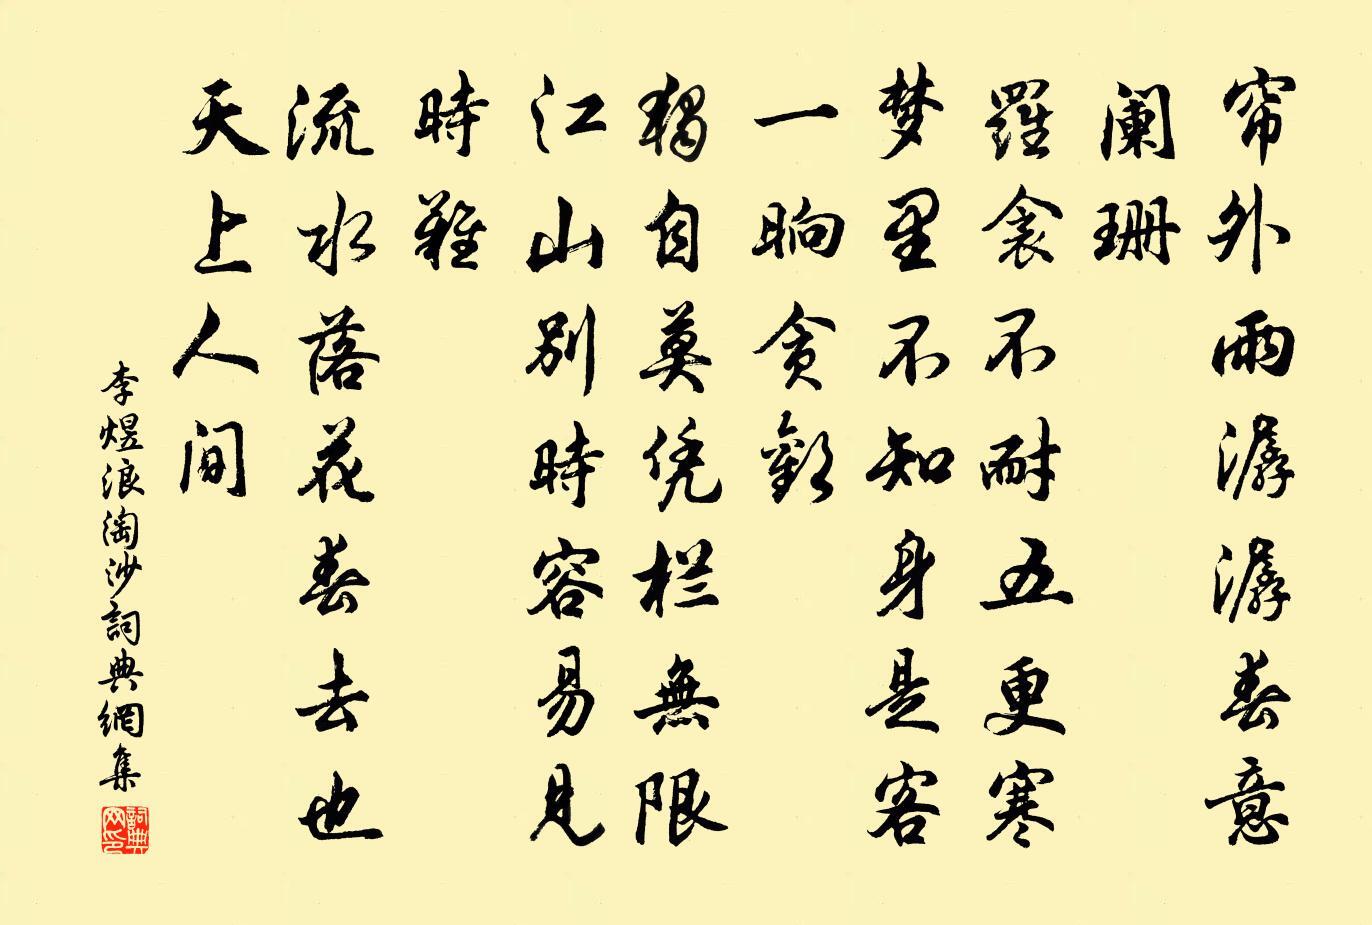 帘外雨潺潺春意
阑珊
羅衾不耐五更寒
梦里不知身是客
一晌贪歡
獨自莫凭栏無限
江山別時容易見
時難
流水落花春去也
天上人间
李煜浪淘沙詞典網集
詞典网印